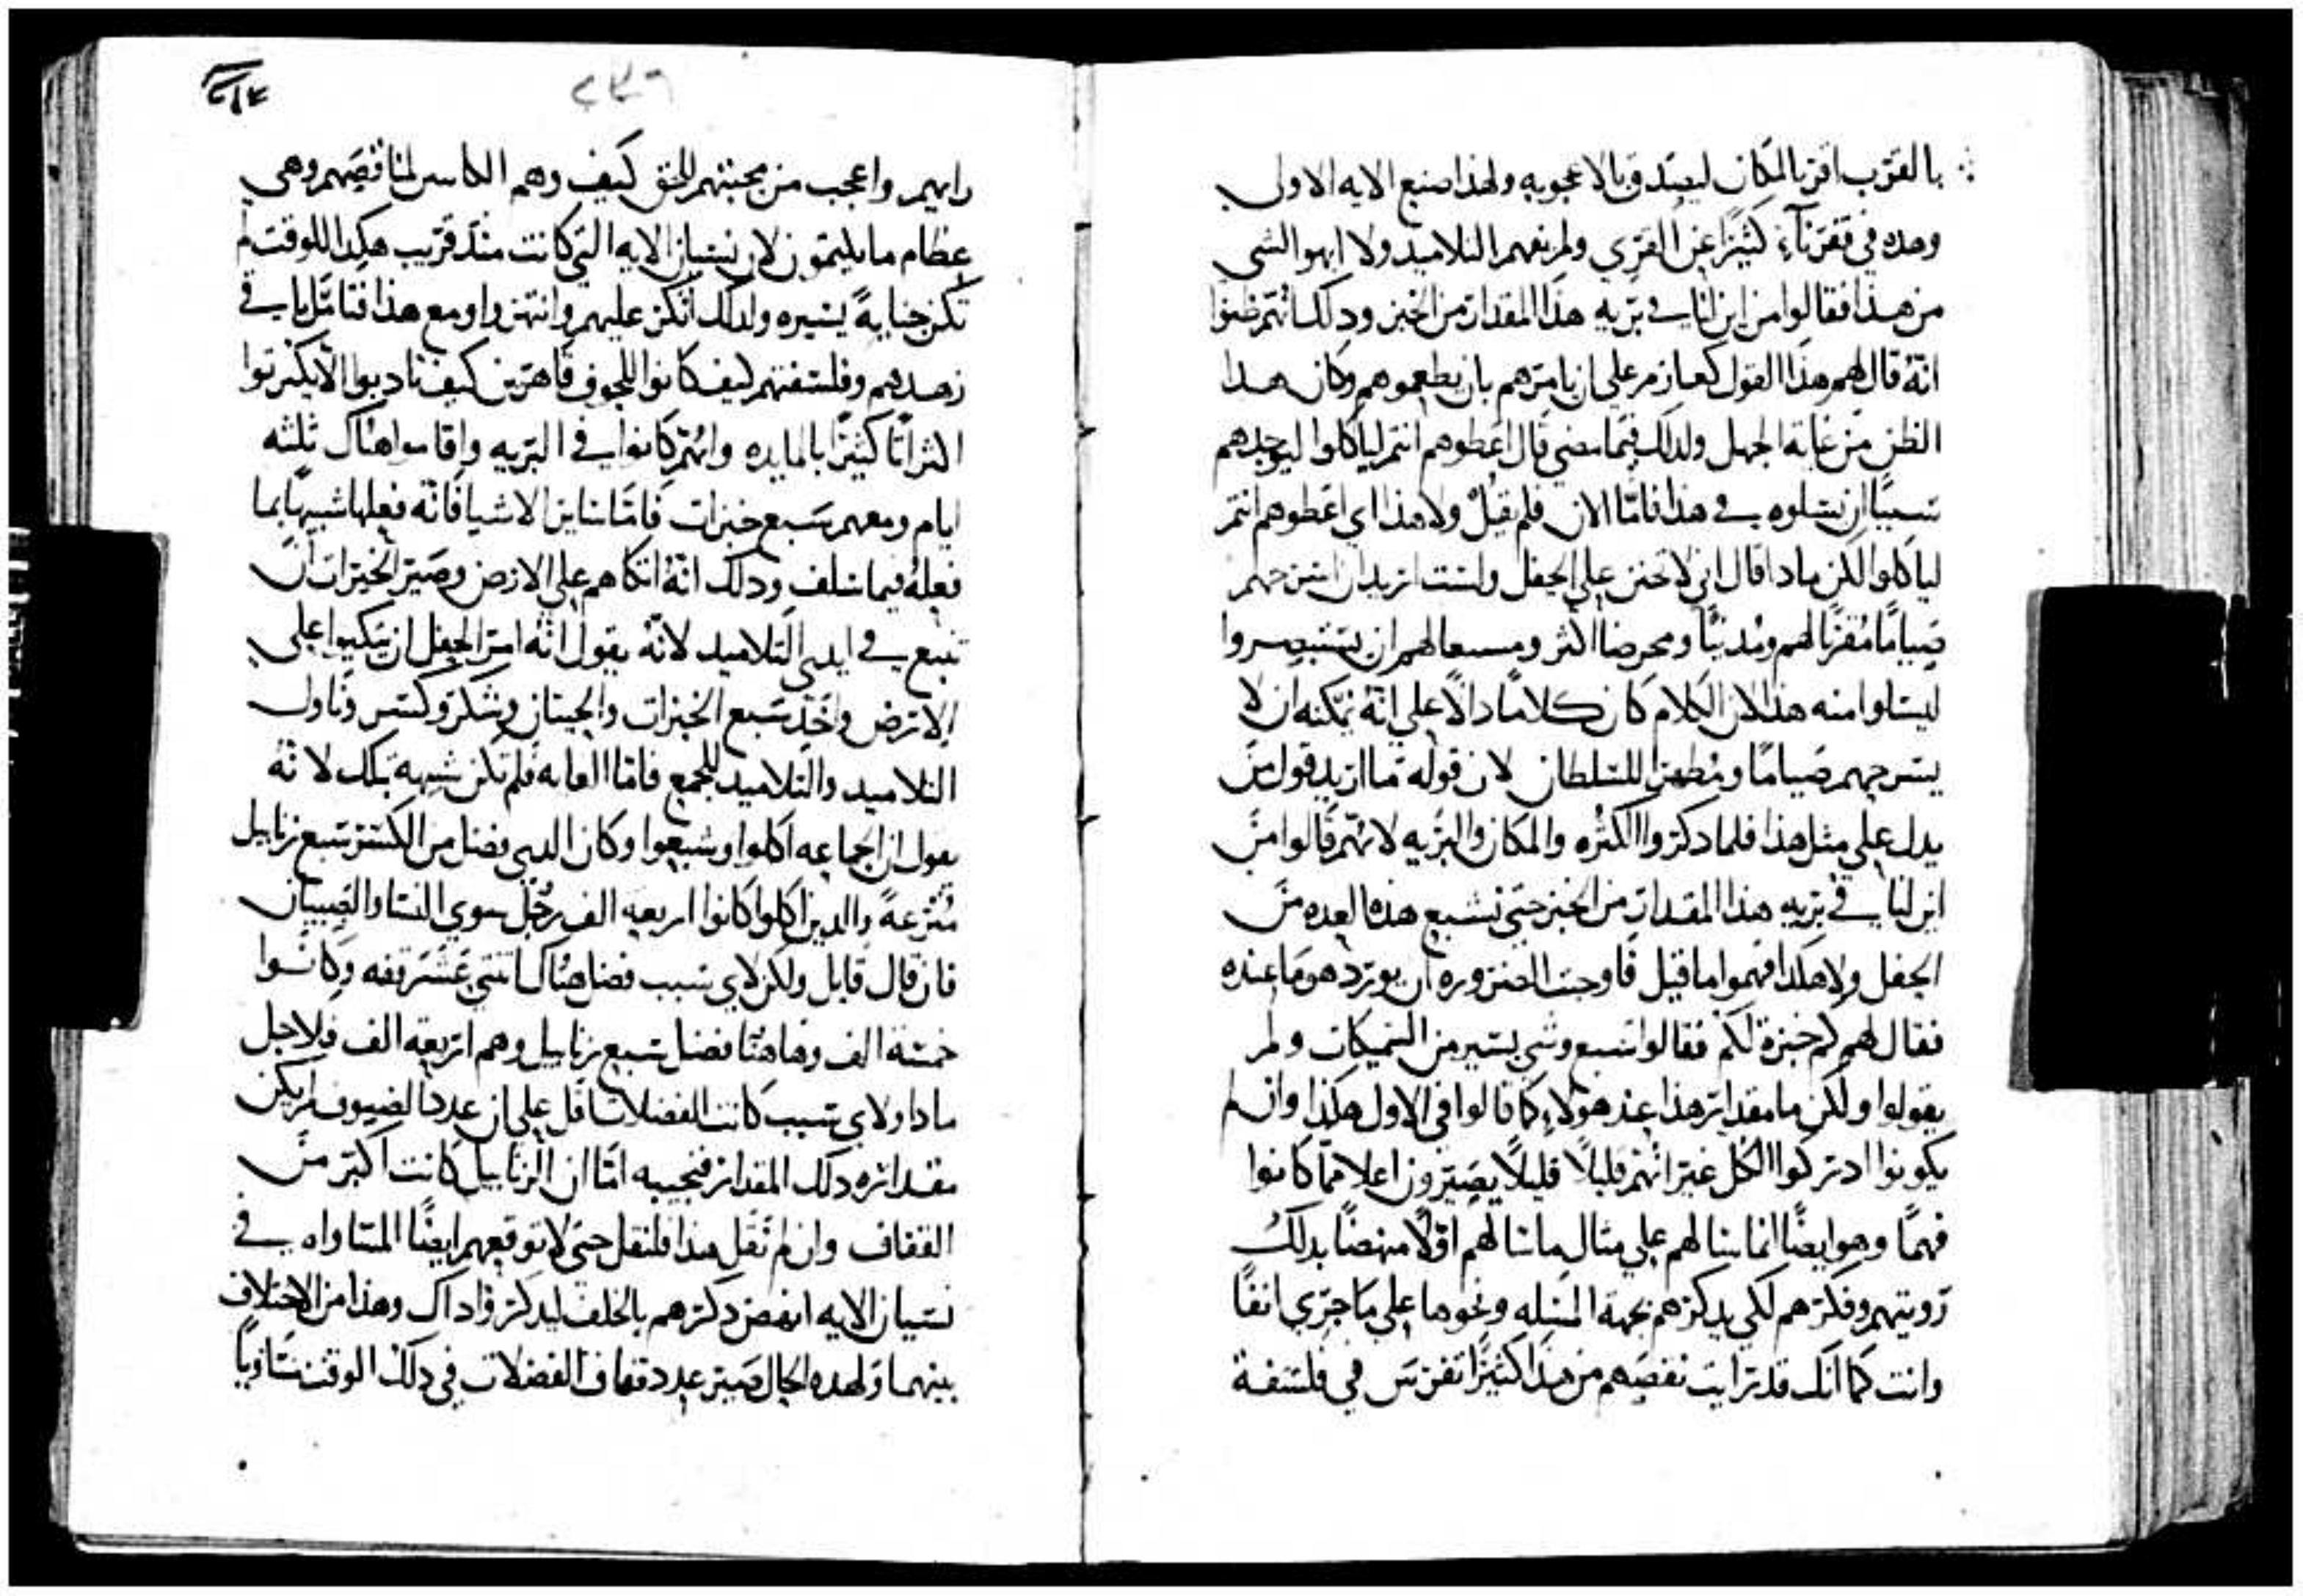 بالقرب اقر بالمكان ليصدقو بالاعجوبه ولهذا صنع الايه الاولي
وهده في قفرنآء كثيرًا عن القري ولم يفهم التلاميد ولا ابهوا لشي
من هذا فقالوا من اين لنا في بريه هذا المقدار من الخبز ودلك انهم ظنوا
انه قال لهم هذا القول كعازم على ان يامرهم بان يطعموهم وكان هدا
الظن من غاية الجهل ولدلك فيما مضي قال اعطوهم انتم لياكلوا ليوجدهم
سببًا ان يسلوه في هذا فامّا الان فلم يقل ولا هذا اي اعطوهم انتم
لياكلوا لكن مادا قال اني لاتحنن علي الجفل ولست اريد ان اسرحهم
صيامًا مقربًا لهم ومدنيًا ومحرضا اكثر ومسعا لهم ان يستبصروا
ليسلوا منه هذا لان الكلام كان كلامًا دالًا علي انه يمكنه ان لا
يسرحهم صيامًا ومظهرا للسلطان لان قوله ما اريد قول من
يدل علي مثل هذا فلما دكروا الكثره والمكان والبريه لانهم قالوا من
اين لنا في بريه هذا المقدار من الخبز حتي نشبع هذه العده من
الجفل ولا هكدا فهموا ما قيل فاوجب الضروره ان يورد هو ما عنده
فقال لهم كم خبزة لكم فقالوا سبع وشي يسير من السميكات ولم
يقولوا ولكن ما مقدار هذا عند هولاء كما قالوا في الاول هكذا وان لم
يكونوا ادركوا الكل غير انهم قليلًا قليلًا يصيرون اعلا مما كانوا
فهمًا وهو ايضًا انما سالهم علي مثال ما سالهم اوّلًا منهضًا بدلك
رويتهم وفكرهم لكي يدكرهم بجهة المسله ونحوها علي ما جري انفًا
وانت كما انك قد رايت نقصهم من هذا كثيرًا تفرس في فلسفة
رايهم واعجب من محبتهم للحق كيف وهم الكاتبون لمناقصهم وهي
عظام ما يكتمون لان نسيان الايه التي كانت مند قريب هكدا للوقت لم
تكن جنايةً يسيره ولدلك انكر عليهم وانتهروا ومع هذا فتامل يا في
زهدهم وفلسفتهم كيف كانوا للجوف قاهرين كيف تادبوا الا يكترثوا
اكتراثًا كثيرًا بالمايده وانهم كانوا في البريه واقاموا هناك ثلثه
ايام ومعهم سبع خبزات فامّا ساير الاشيا فانّه فعلها شبيهًا بما
فعله فيما سلف ودلك انّه اتكاهم علي الارض وصيّر الخبزات ان
تنبع في ايدي التلاميد لانّه يقول انّه امر الجفل ان يتكيوا علي
الارض واخد سبع الخبزات والحيتان وشكر وكسر وناول
التلاميد والتلاميد للجمع فامّا الغايه فلم تكن شبهه بتلك لانه
يقول ان الجماعه اكلوا وشبعوا وكان الدي فضل من الكسر سبع زنابيل
مترعةً والدين اكلوا كانوا اربعه الف رجل سوي النسا والصبيان
فان قال قايل ولكن لاي سبب فضل هناك اثنتي عشر قفه وكانوا
خمسة الف وهاهنا فضل سبع زنابيل وهم اربعه الف فلاجل
مادا ولاي سبب كانت الفضلات اقل علي ان عدد الضيوف لم يكن
مقداره دلك المقدار فنجيبه امّا ان الزنابيل كانت اكبر من
القفاف وان لم نقل هذا فلنقل حتي لا توقعهم ايضًا المساواه في
نسيان الايه انهض دكرهم بالخلف ليدكروا داك وهذا من الاختلاف
بينهما ولهده الحال صير عدد قفاف الفضلات في دلك الوقت مساويًا